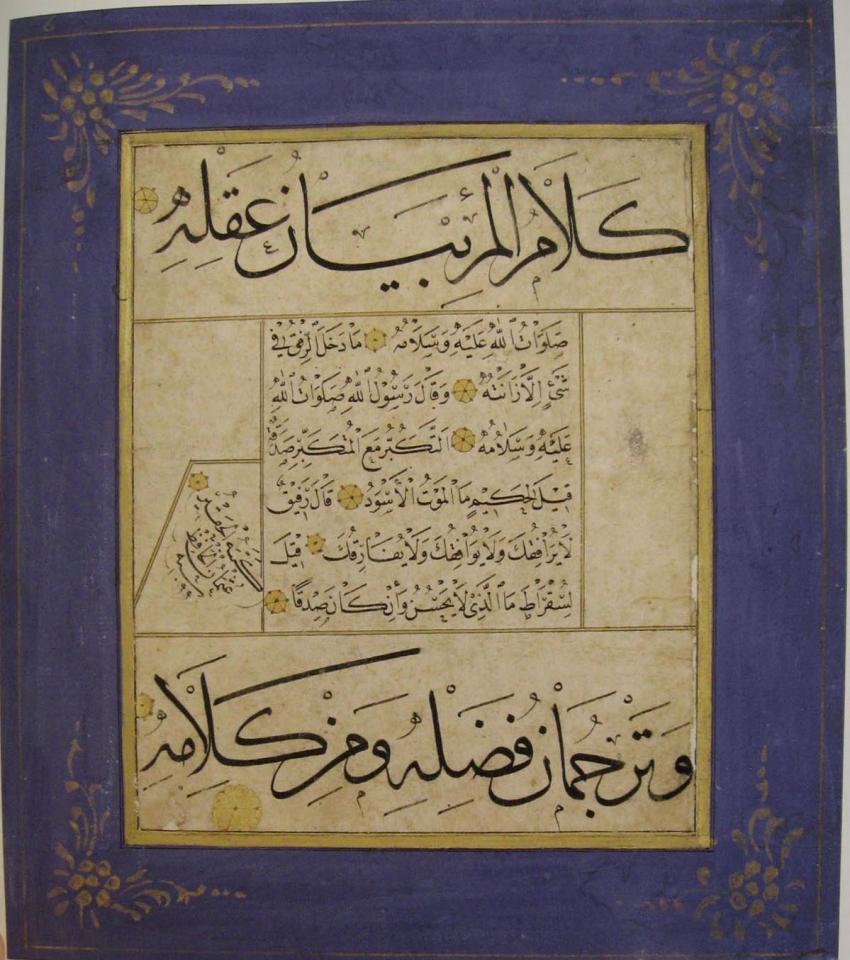 كَلَامُ الْمَرْءِ بَيَانُ عَقْلِهِ
صَلَوَاتُ اللهِ عَلَيْهِ وَسَلَامُهُ مَا دَخَلَ الرِّفْقُ فِي
شَيْءٍ إِلَّا زَانَتْهُ وَقَالَ رَسُولُ اللهِ صَلَوَاتُ اللهِ
عَلَيْهِ وَسَلَامُهُ التَّكَبُّرُ مَعَ الْمُتَكَبِّرِ صَدَقَةٌ
قِيلَ لِحَكِيمٍ مَا الْمَوْتُ الْأَسْوَدُ قَالَ رَفِيقٌ
لَا يُرَافِقُكَ وَلَا يُوَافِقُكَ وَلَا يُفَارِقُكَ قِيلَ
لِسُقْرَاطَ مَا الَّذِي لَا يَحْسُنُ وَأِنْ كَانَ صِدْقًا
كتبه الحقير
عثمان الحافظ
سنة
وَتَرْجُمَانُ فَضْلِهِ وَمِنْ كَلَامِهِ